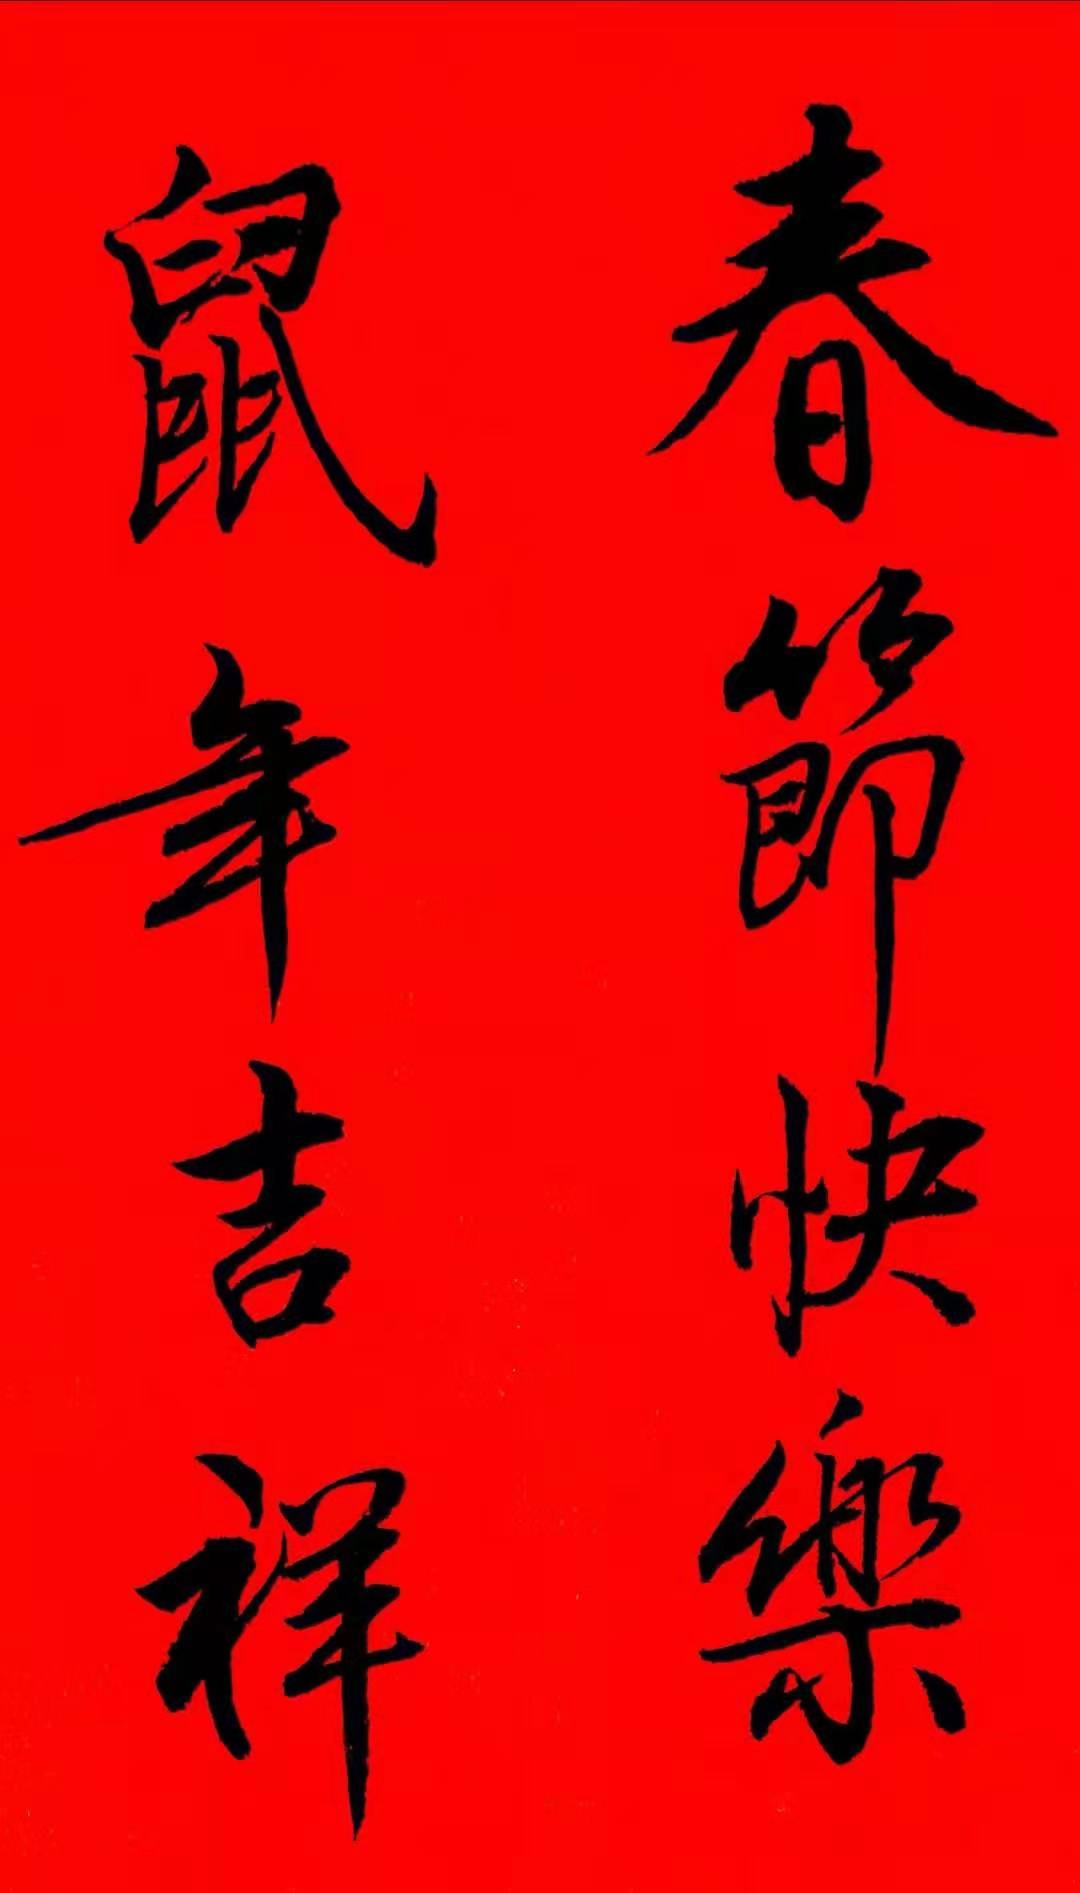 春節快樂
鼠年吉祥